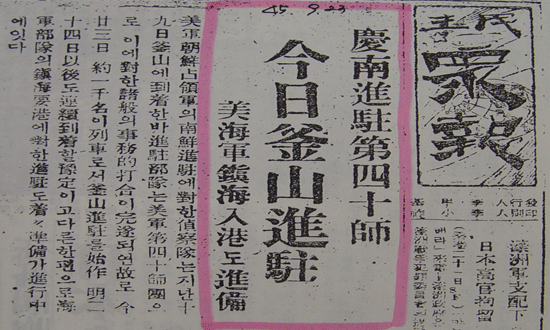 45 9.23
民主
衆報
濠洲軍支配下
日本高官拘留
慶南進駐第四十師
今日釜山進駐
美海軍鎭海入港도進備
美軍朝鮮占領軍의南鮮進駐에對한偵察隊는지난十
九日釜山에到着한바進駐部隊는美軍第四十師團으
로 이에對한諸般의事務的打合이完遂되연故로 今
廿三日 約一千名이列車로서釜山進駐를始作 明二
十四日以後도連續到着할豫定이고다른한便으로海
軍部隊의鎭海要港에對한進駐도着々準備가進行中
에잇다